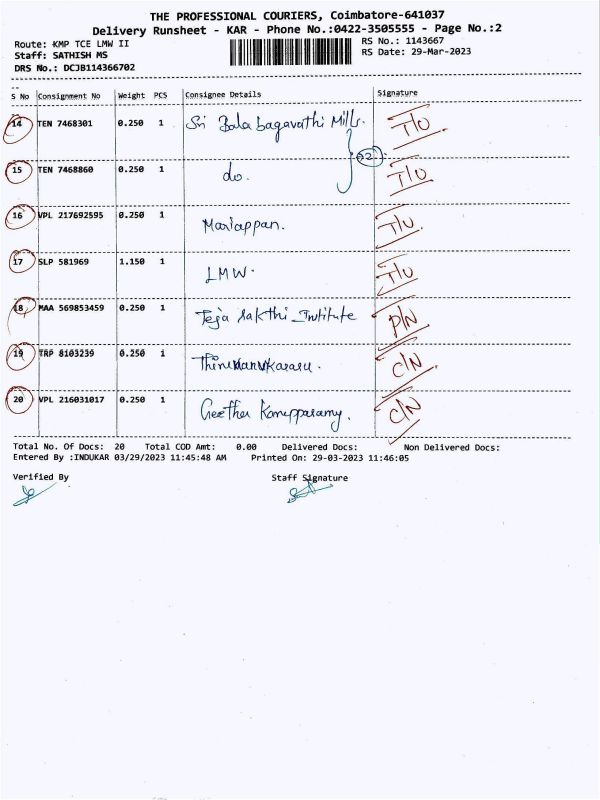 THE PROFESSIONAL COURIERS, Coimbatore-641037
Delivery Runsheet - KAR - Phone No.:0422-3505555 - Page No.:2
Route: KMP TCE LMW II
RS No.: 1143667
Staff: SATHISH MS
RS Date: 29-Mar-2023
DRS No.: DCJB114366702
S No Consignment No Weight PCS Consignee Details Signature
14 TEN 7468301 0.250 1 Sri Bala bagavathi Mills. T/U
2
15 TEN 7468860 0.250 1 do. T/U
16 VPL 217692595 0.250 1 Mariappan. T/U
17 SLP 581969 1.150 1 LMW. T/U
18 MAA 569853459 0.250 1 Teja sakthi Institute P/N
19 TRP 8103239 0.250 1 C/N
20 VPL 216031017 0.250 1 Geetha C/N
Total No. Of Docs: 20 Total COD Amt: 0.00 Delivered Docs: Non Delivered Docs:
Entered By :INDUKAR 03/29/2023 11:45:48 AM Printed On: 29-03-2023 11:46:05
Verified By Staff Signature